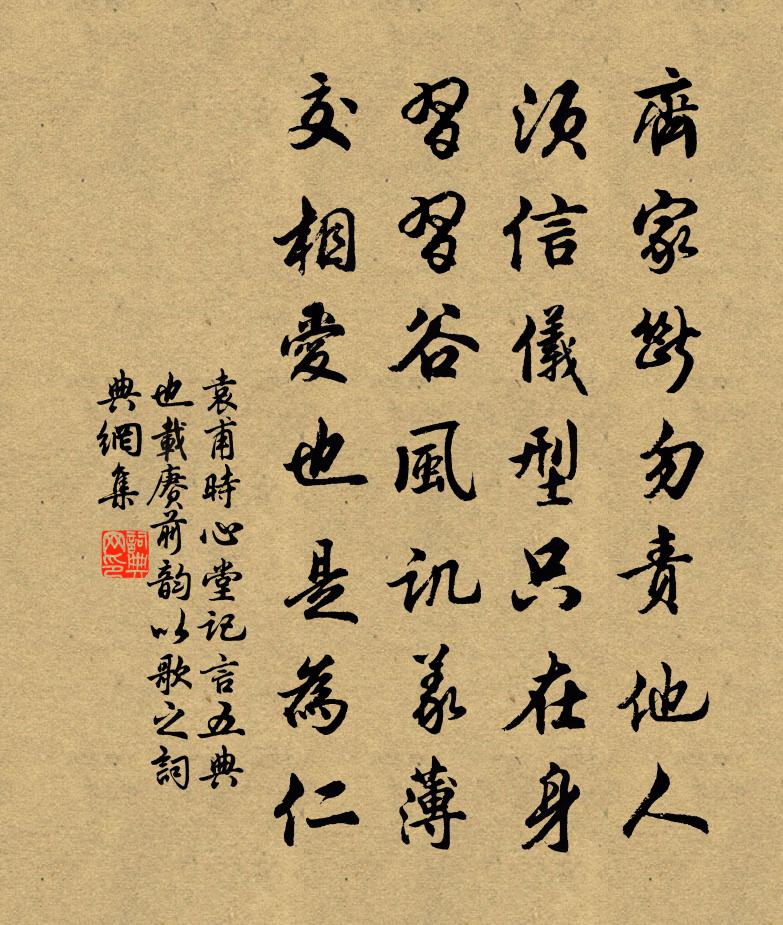 齊家斷勿責他人
須信儀型只在身
習習谷風讥義薄
交相愛也是為仁
袁甫時心堂記言五典
也載賡前韵以歌之詞
典網集
詞典网印